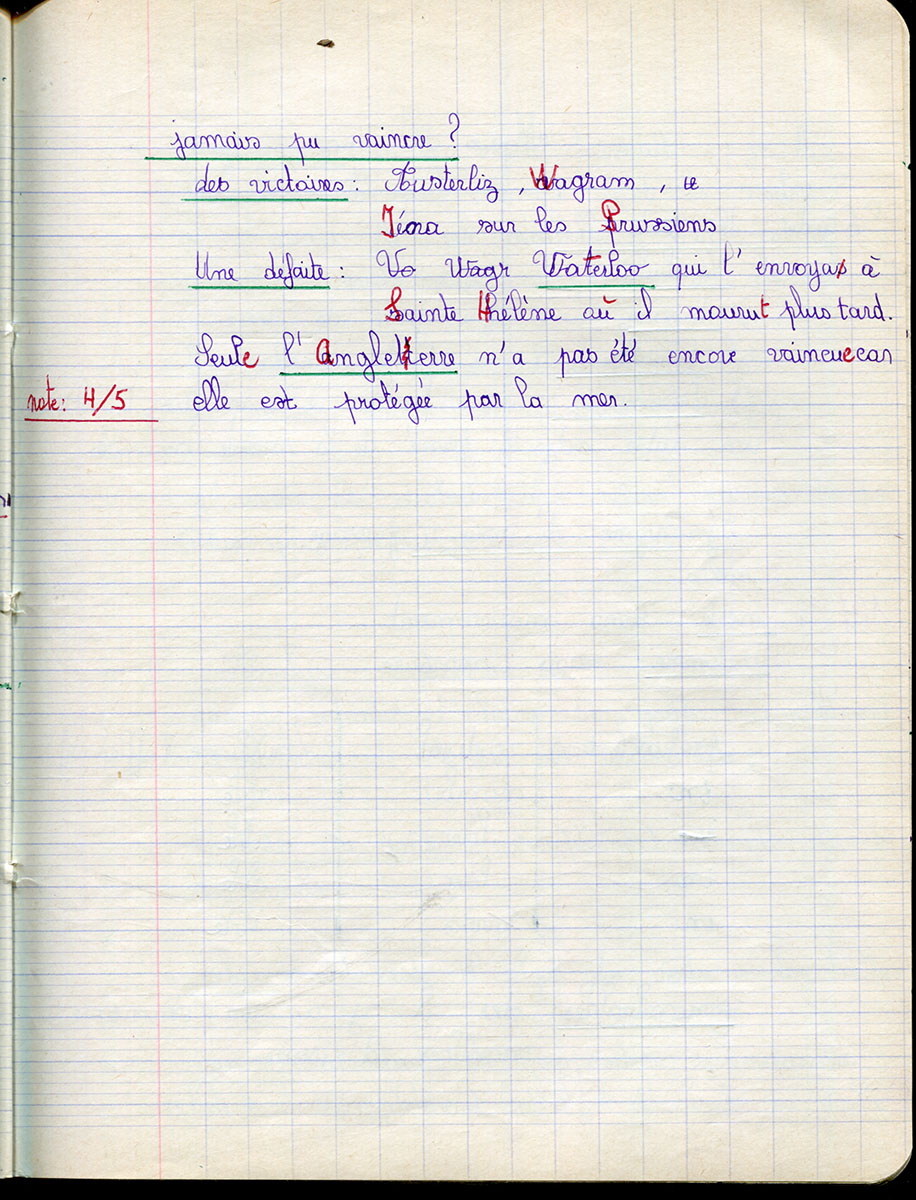 jamais pu vaincre ?
des victoires : Austerliz , Wagram , le
Iéna sur les Prussiens
Une défaite : Va Wagr Waterloo qui l'envoya à
Sainte Hélène où il mourut plus tard.
Seule l'Angleterre n'a pas été encore vaincue car
note : 4/5 elle est protégée par la mer.